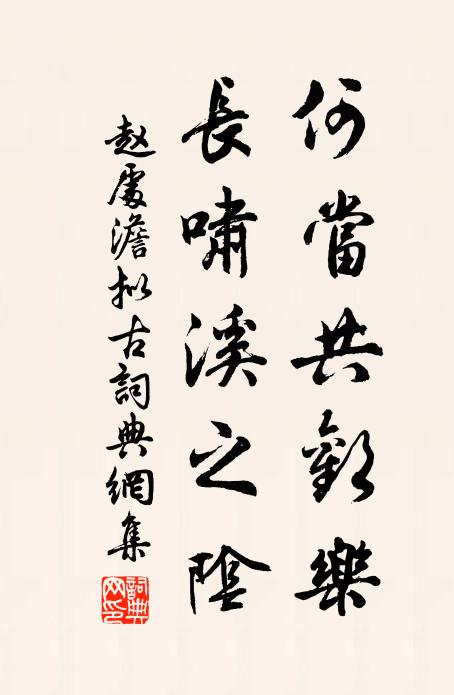 何當共歡樂
長嘯溪之陰
赵處澹拟古詞典網集
詞典網印